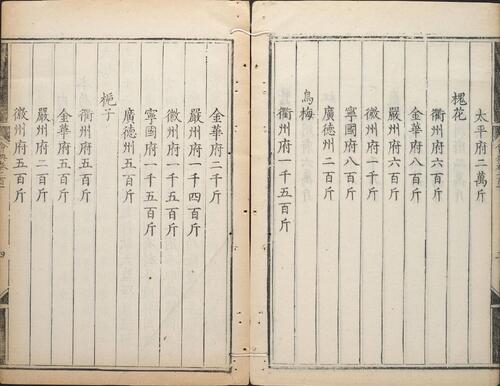 太平府二萬斤
槐花
衢州府六百斤
金華府八百斤
嚴州府六百斤
徽州府一千斤
寧國府八百斤
廣德州二百斤
烏梅
衢州府一千五百斤
金華府二千斤
嚴州府一千四百斤
徽州府一千五百斤
寧國府一千五百斤
廣德州五百斤
梔子
金華府五百斤
衢州府五百斤
嚴州府二百斤
徽州府五百斤